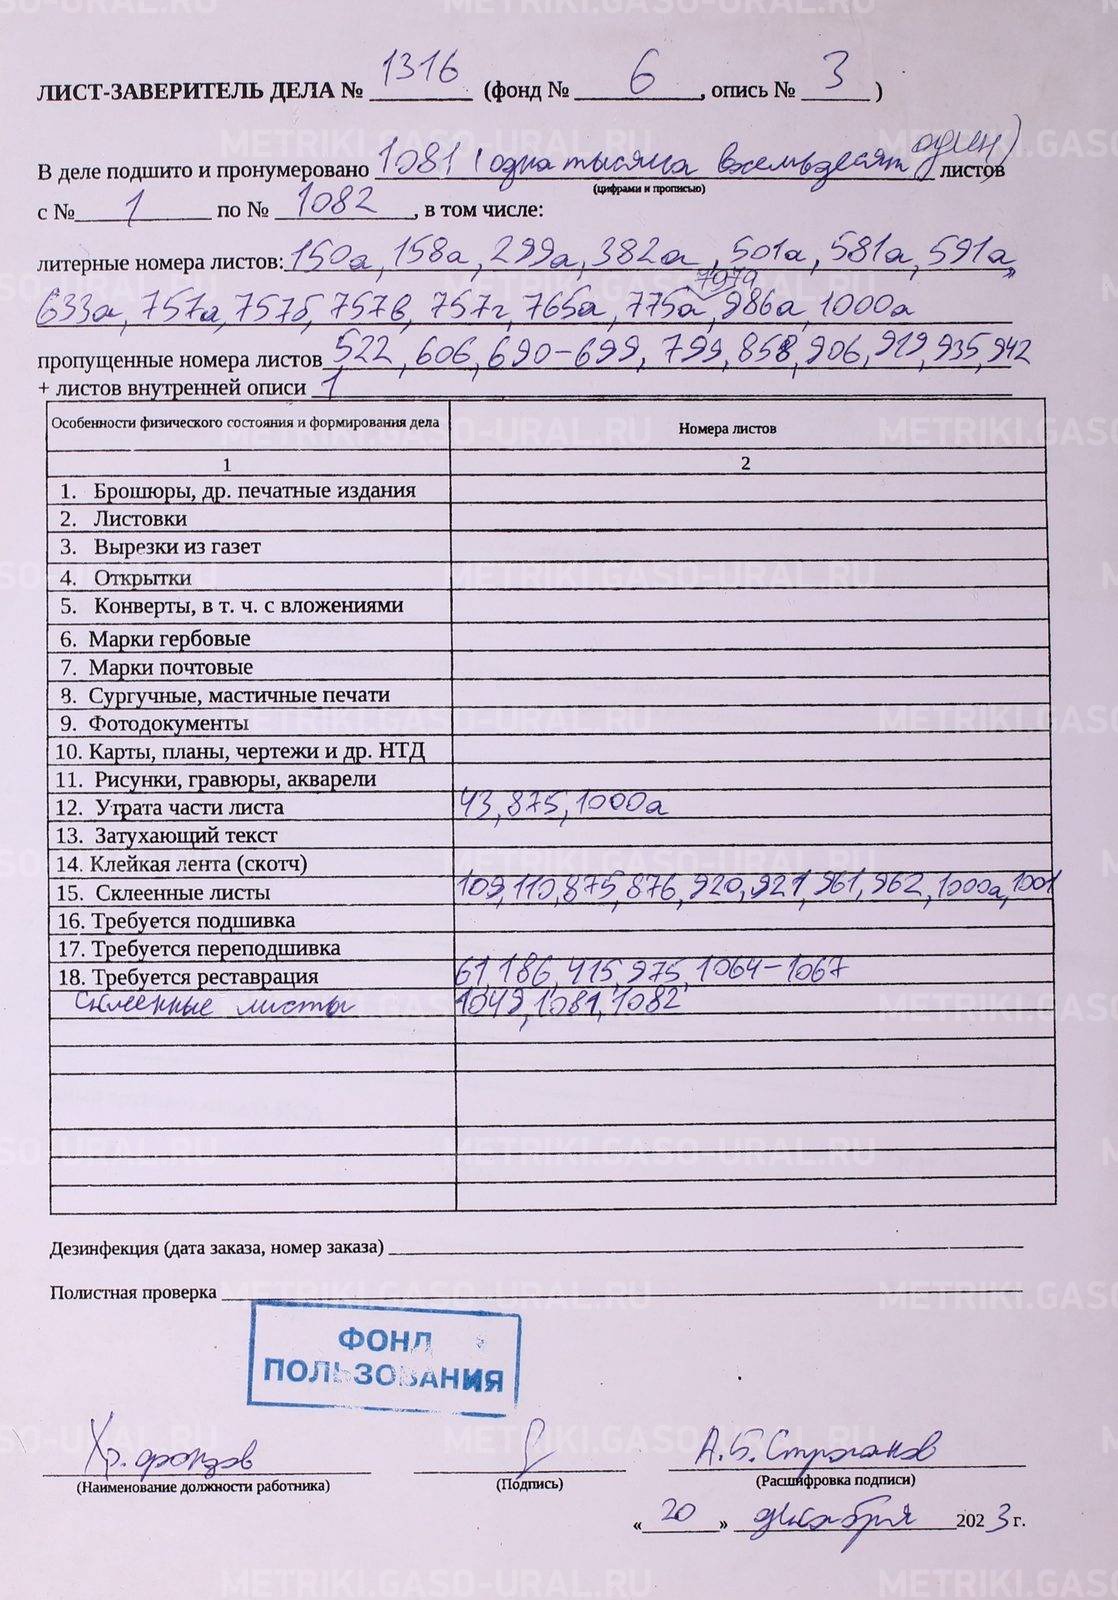 ЛИСТ-ЗАВЕРИТЕЛЬ ДЕЛА № 1316 (фонд № 6, опись № 3)
В деле подшито и пронумеровано 1081 (одна тысяча восемьдесят один) листов
(цифрами и прописью)
с № 1 по № 1082, в том числе:
литерные номера листов: 150а, 158а, 299а, 382а, 501а, 581а, 591а,
797а
633а, 757а, 757б, 757в, 757г, 765а, 775а, 986а, 1000а
пропущенные номера листов 522, 606, 690-699, 799, 858, 906, 929, 935, 942
+ листов внутренней описи 1
Особенности физического состояния и формирования дела Номера листов
1 2
1. Брошюры, др. печатные издания
2. Листовки
3. Вырезки из газет
4. Открытки
5. Конверты, в т. ч. с вложениями
6. Марки гербовые
7. Марки почтовые
8. Сургучные, мастичные печати
9. Фотодокументы
10. Карты, планы, чертежи и др. НТД
11. Рисунки, гравюры, акварели
12. Утрата части листа 43, 875, 1000а
13. Затухающий текст
14. Клейкая лента (скотч)
15. Склеенные листы 109, 110, 875, 876, 920, 921, 961, 962, 1000а, 1001
16. Требуется подшивка
17. Требуется переподшивка
18. Требуется реставрация 61, 186, 415, 975, 1064-1067
Склеенные листы 1049, 1081, 1082
Дезинфекция (дата заказа, номер заказа)
Полистная проверка
ФОНД
ПОЛЬЗОВАНИЯ
Хр. фондов А.Б. Строганов
(Наименование должности работника) (Подпись) (Расшифровка подписи)
« 20 » декабря 2023 г.
METRIKI.GASO-URAL.RU